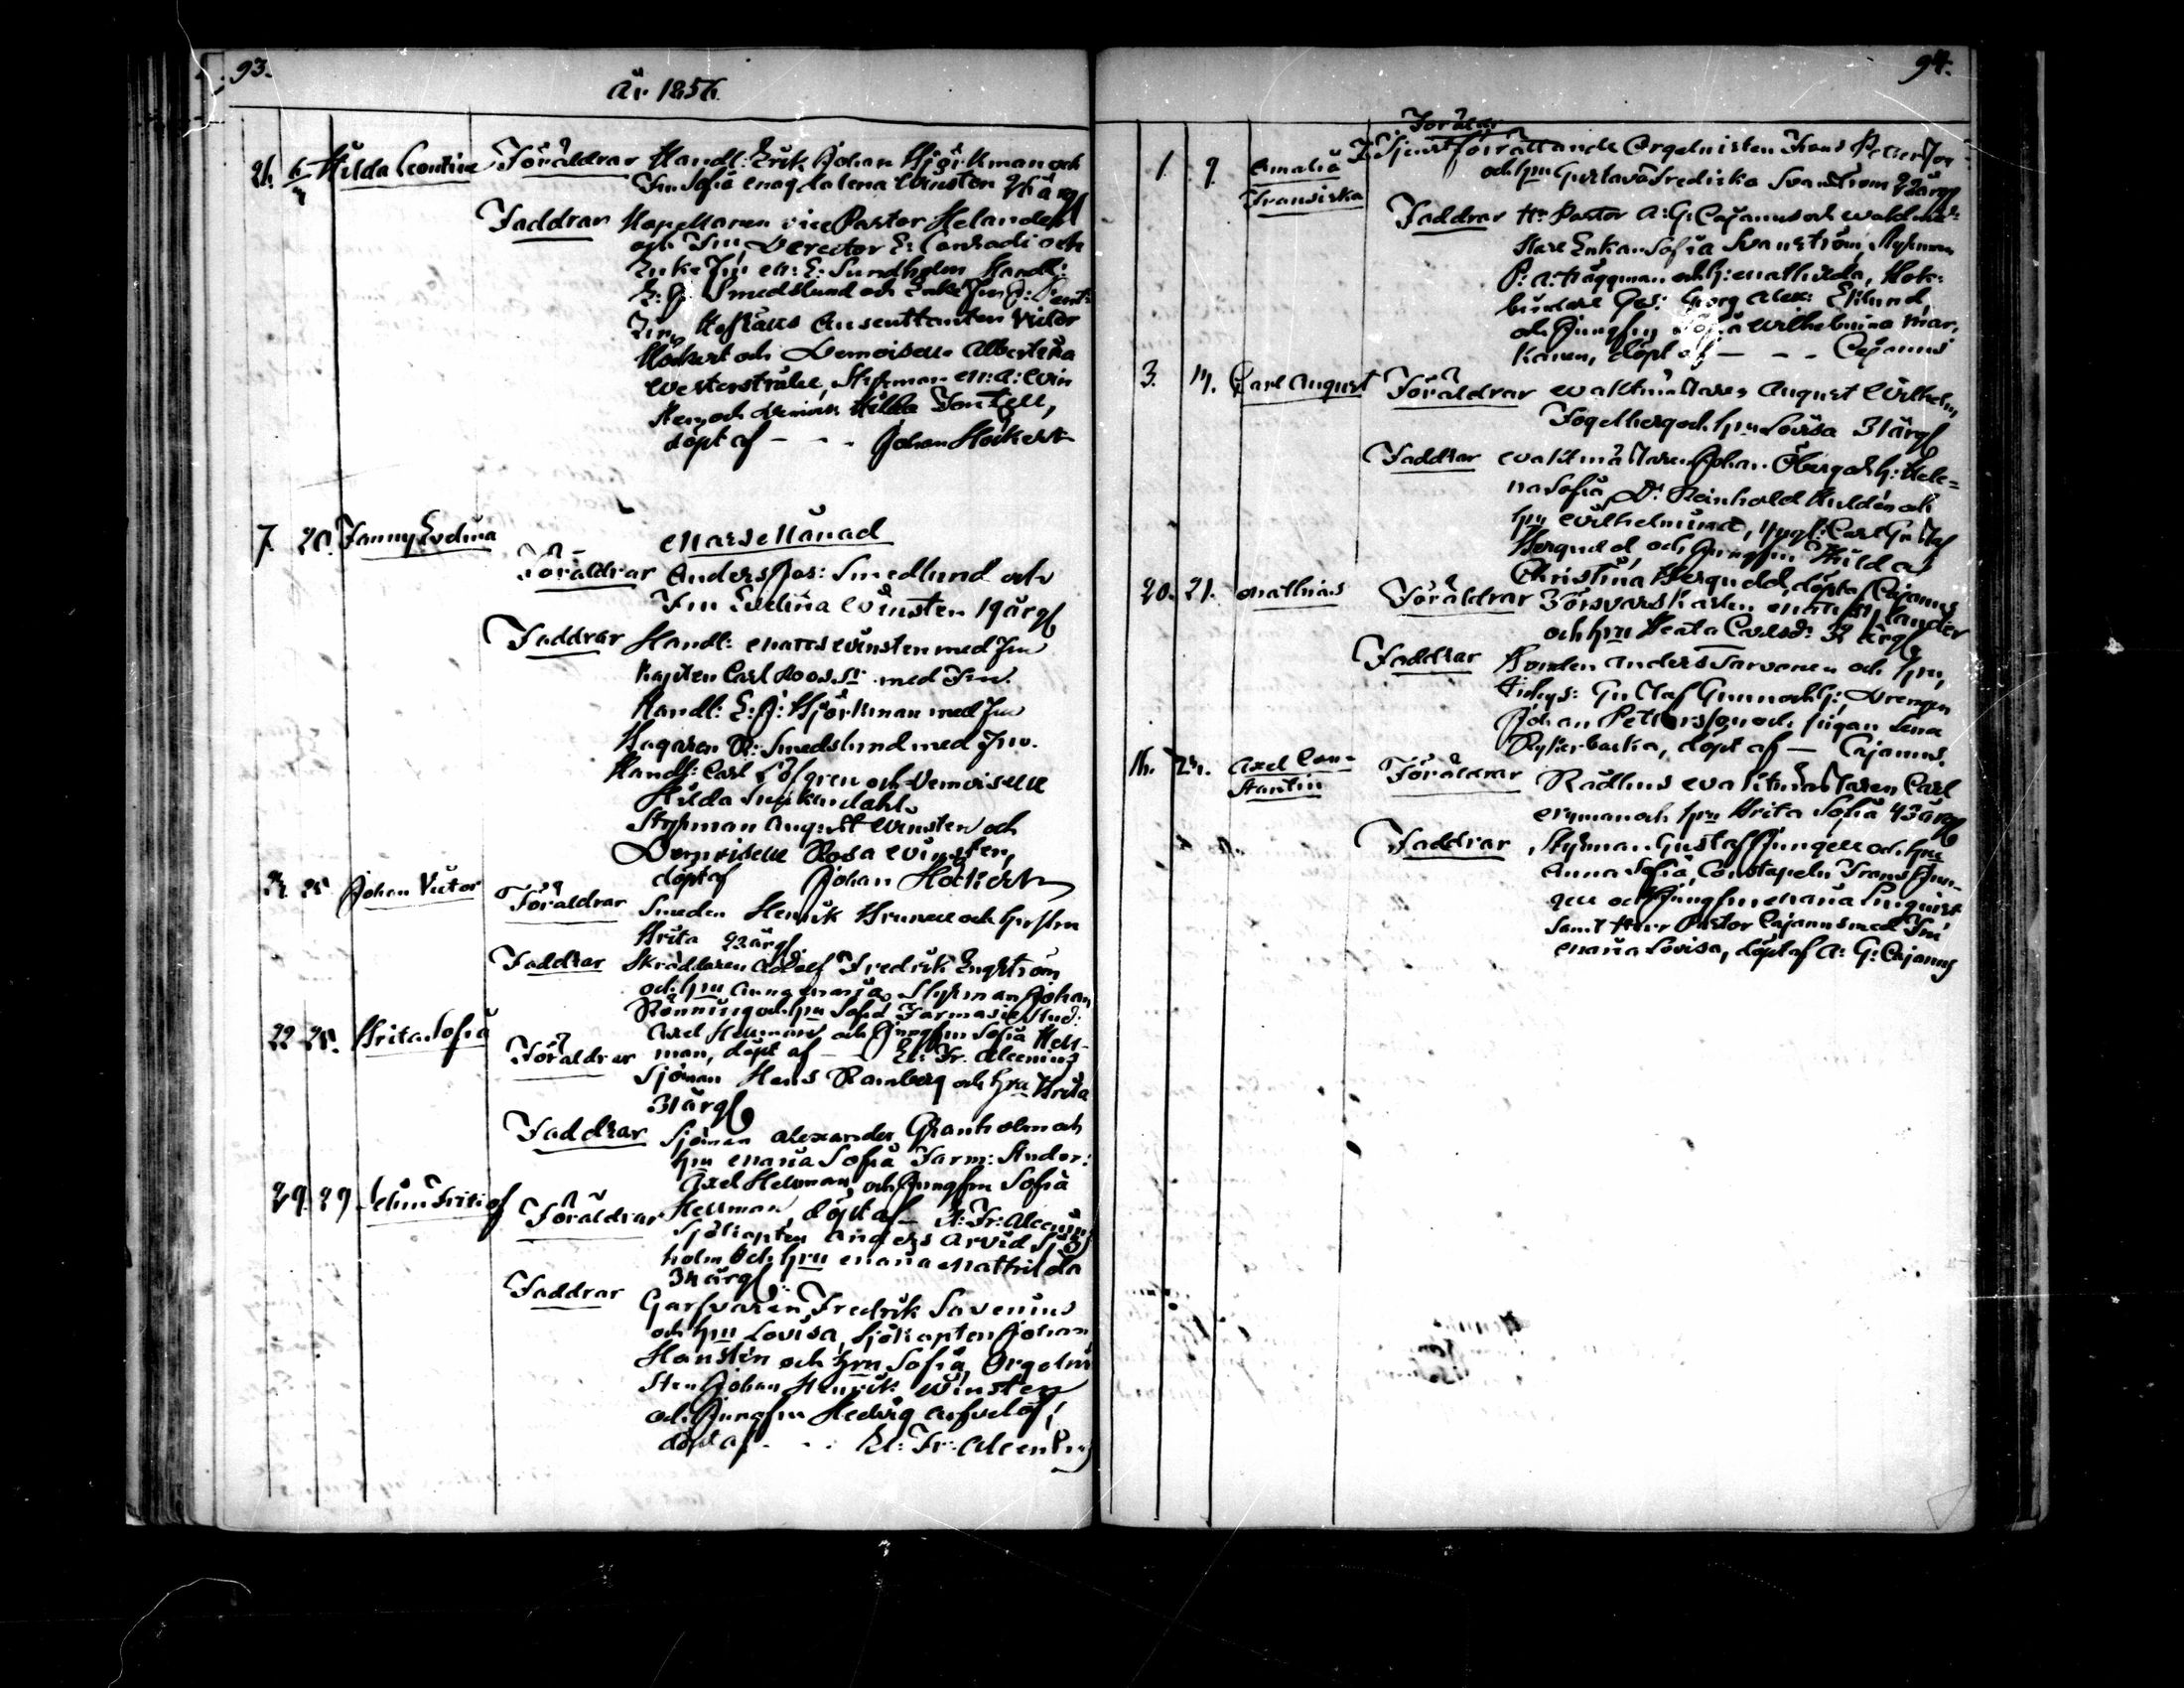 93.
År 1856.
21. 6/7 Hilda Leontine Föräldrar Handl: Erik Johan Björkman och
Fru Sofia Magdalena Winsten 26 årg
Faddrar Kapellanen vice Pastor Helander
och Fru, Director E: Conradi och
Enke Fru M: E: Sundholm Handl:
E: J: Smedslund och Enke Fru
Hofräts Auscultanten Victor
Höckert och Demoiselle Albertina
Westerstråle, Styrman M: A: Win
sten och Hilda Fontell,
döpt af - - - Johan Höckert
Mars Månad
7. 20. Fanny Evelina
Föräldrar Anders Jos: Smedlund och
Fru Evelina Winsten 19 årg
Faddrar Handl: Matts Winsten med Fru
Kapten Carl Roos Sr med Fru.
Handl: E: J: Björkman med Fru
Bagaren R: Smedslund med Fru.
Handl: Carl Löfgren och Demoiselle
Hilda
Styrman August Winsten och
Demoiselle Rosa Winsten,
döpt af Johan Höckert
24. 25. Johan Victor Föräldrar Smeden Henrik Brunell och hustru
Brita 42 årg
Faddrar Skräddaren Adolf Fredrik Engström
och hru Anna Maria, Styrman Johan
Rönning och hru Sofia Farmacie Stud:
Axel Hellman och Jungfrun Sofia Hell-
man, döpt af - - El: Fr: Alcenius
22 25. Brita Sofia Föräldrar
Sjöman Hans Ramberg och hru Brita
31 årg
Faddrar Sjöman Alexander Granholm och
hru Maria Sofia Farm: Studer:
Axel Hellman, och Jungfrun Sofia
Hellman, döpt af - El: Fr: Alcenius
29. 29 Selim Fritiof Föräldrar
Sjökapten Anders Arvid Sjö
holm och hru Maria Mathilda
34 årg
Faddrar Garfvaren Fredrik Savenius
och hru Lovisa, Sjökapten Johan
Hansten och hru Sofia, Orgelni
sten Johan Henrik Winsten
och Jungfrun Hedvig Arfvelöf,
döpt af - - - El: Fr: Alcenius
94.
Föräldr
1. 9. Amalia Fransiska Tjenstförrättande Orgelnisten Frans Petter
och hru Gustava Fredrika Svanström 22 årg
Faddrar Hr Pastor A: G: Cajanus och Waktmä-
stare Enkan Sofia Svanström, Styrman
P: A: Häggman och h: Mathilda, Bok-
bindare Ges: Georg Alex: Eklund,
och Jungfru Sofia Wilhelmina Mar-
kanen, döpt af - - - Cajanus
3. 14. Carl August Föräldrar Waktmästaren August Wilhelm
Fogelberg och hru Lovisa 31 årg
Faddrar Waktmästaren Johan Öberg och h: Hele-
na Sofia, Dr Reinhold Huldén och
hru Wilhelmina, Carl Gustaf
Bergudd, och Jungfrun Hilda
Christina Bergudd, döpt af Cajanus
20. 21. Mathias Föräldrar Försvarskarlen
och hru Beata Carlsdr 32 årg
Faddrar Bonden Anders Tarvonen och hru,
Gustaf Gunn och h:, Drengen
Johan Pettersson och pigan Lena
Rykerbacka, döpt af - Cajanus.
16. 24. Axel Con-
stantin
Föräldrar Rådhus Waktmästaren Carl
Nyman och hru Brita Sofia 43 årg
Faddrar Styrman Gustaf Jungell och hru
Anna Sofia, Constapeln Frans Jun-
gell och Jungfrun Maria Linqvist
samt Herr Pastor Cajanus med Fru
Maria Lovisa, döpt af A: G: Cajanus